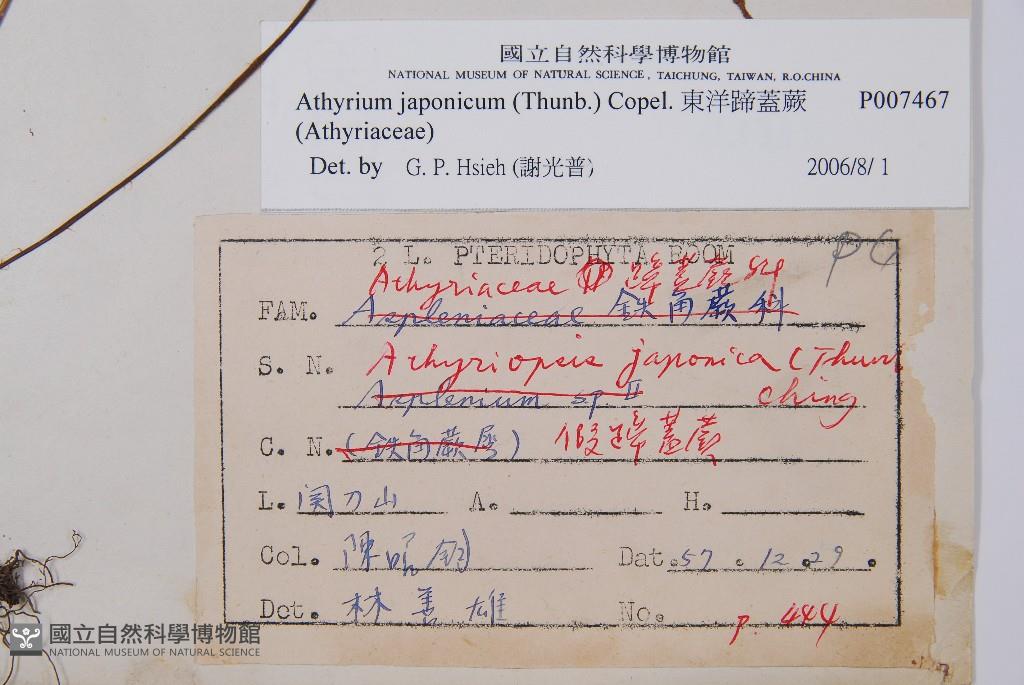 國立自然科學博物館
NATIONAL MUSEUM OF NATURAL SCIENCE, TAICHUNG, TAIWAN, R.O.CHINA
Athyrium japonicum (Thunb.) Copel. 東洋蹄蓋蕨 P007467
(Athyriaceae)
Det. by G. P. Hsieh (謝光普) 2006/8/ 1
2 L. PTERIDOPHYTA ROOM PC
Athyriaceae 蹄蓋蕨科
FAM. Aspleniaceae 鉄角蕨科
S. N. Athyriopsis japonica (Thunb
Asplenium sp. II Ching
C. N. (鉄角蕨屬) 假蹄蓋蕨
L. 関刀山 A. H.
Col. 陳 Dat. 57. 12. 29.
Det. 林善雄 No. p. 444
國立自然科學博物館
NATIONAL MUSEUM OF NATURAL SCIENCE